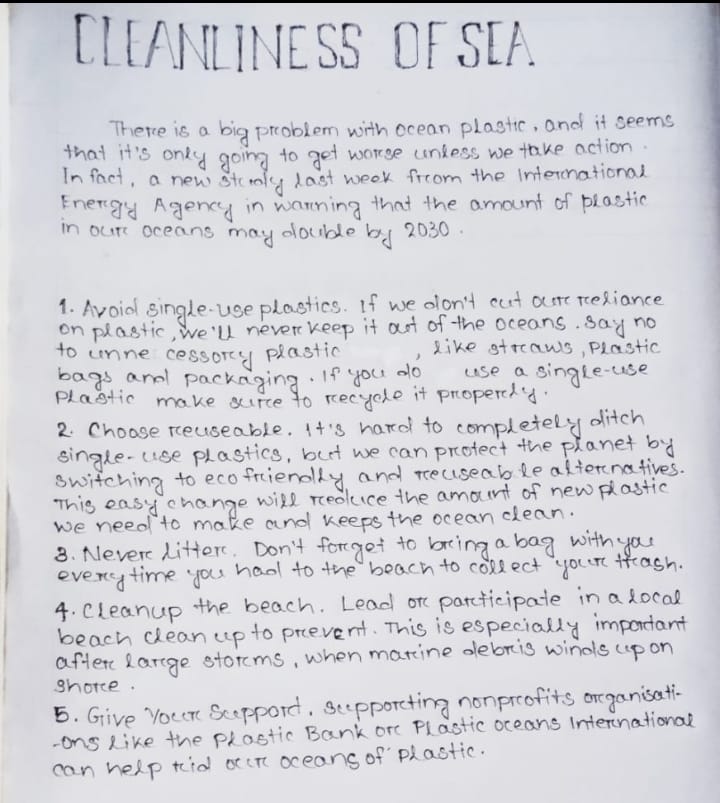 CLEANLINESS OF SEA
There is a big problem with ocean plastic, and it seems
that it's only going to get worse unless we take action.
In fact, a new study last week from the International
Energy Agency in warning that the amount of plastic
in our oceans may double by 2030.
1. Avoid single-use plastics. If we don't cut our reliance
on plastic, we'll never keep it out of the oceans. Say no
to unne cessory plastic , like straws, Plastic
bags and packaging. If you do use a single-use
Plastic make sure to recycle it properly.
2. Choose reuseable. It's hard to completely ditch
single-use plastics, but we can protect the planet by
switching to eco friendly and reuseable alternatives.
This easy change will reduce the amount of new plastic
we need to make and keeps the ocean clean.
3. Never litter. Don't forget to bring a bag with you
every time you had to the beach to collect your trash.
4. Cleanup the beach. Lead or participate in a local
beach clean up to prevent. This is especially important
after large storms, when marine debris winds up on
shore.
5. Give Your Support. Supporting nonprofits organisati-
-ons like the Plastic Bank or Plastic oceans International
can help rid our oceans of plastic.